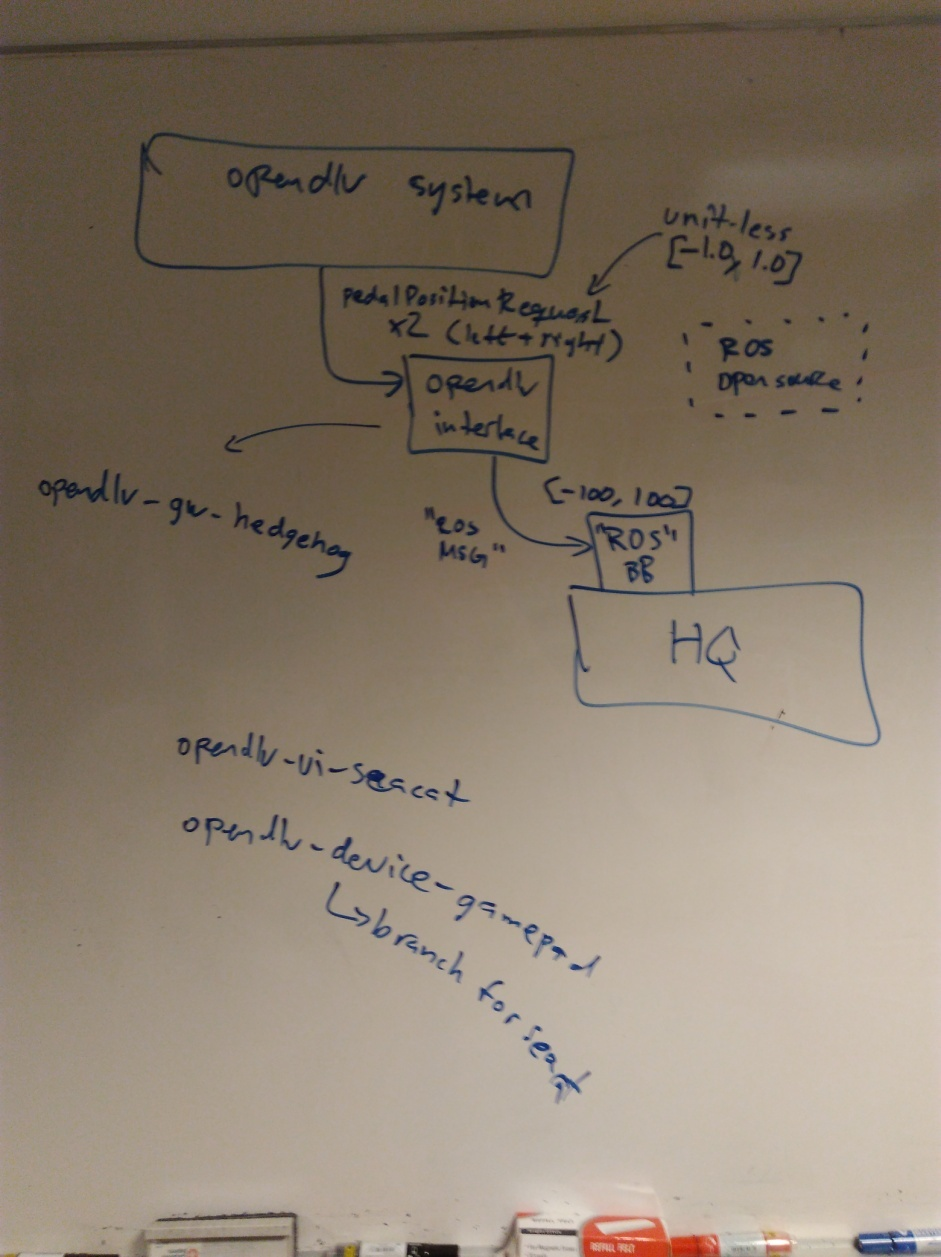 opendlv system
unit-less
[-1.0, 1.0]
pedalPositionRequest
x2 (left + right)
ROS
open source
opendlv
interface
opendlv-gw-hedgehog
[-100, 100]
"ROS
MSG"
"ROS"
BB
HQ
opendlv-ui-seacat
opendlv-device-gamepad
branch for
REFILL INST